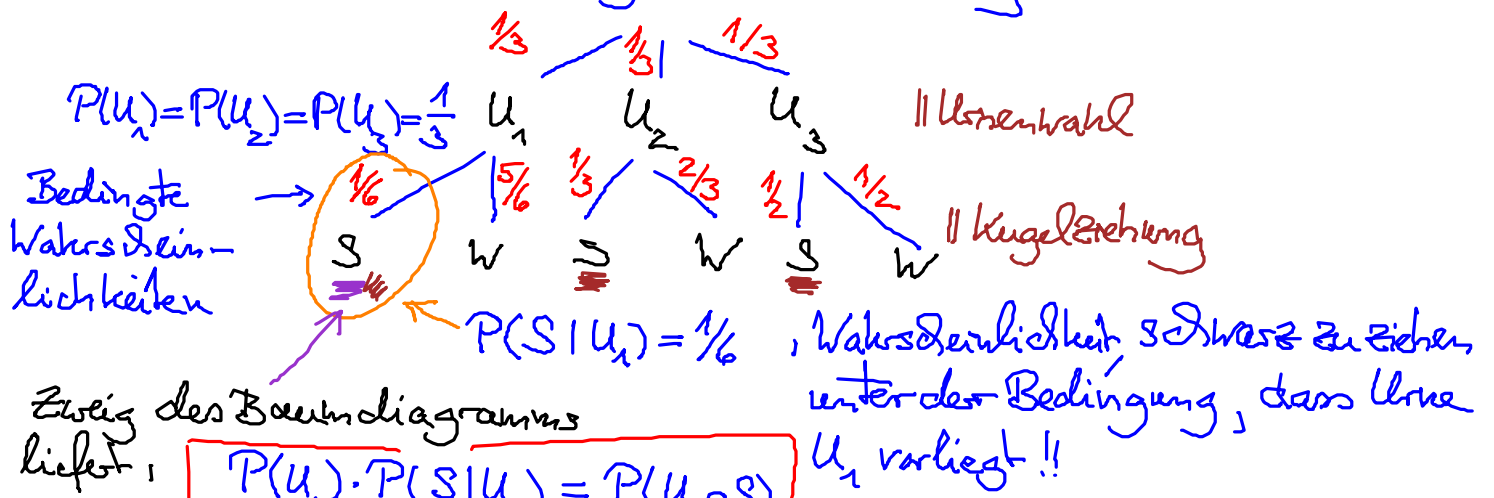 1/3 1/3 1/3
P(U₁)=P(U₂)=P(U₃)=1/3 U₁ U₂ U₃ || Urnenwahl
Bedingte 1/6 5/6 1/3 2/3 1/2 1/2
Wahrschein-
S W S W S W || Kugelziehung
lichkeiten
P(S|U₁) = 1/6 , Wahrscheinlichkeit, schwarz zu ziehen
unter der Bedingung, dass Urne
U₁ vorliegt!!
Zweig des Baumdiagramms
liefert,
P(U₁)·P(S|U₁) = P(U₁∩S)